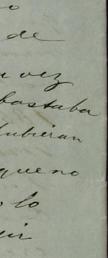 o
de
vez
bastaba
hubieran
queno
lo
uir